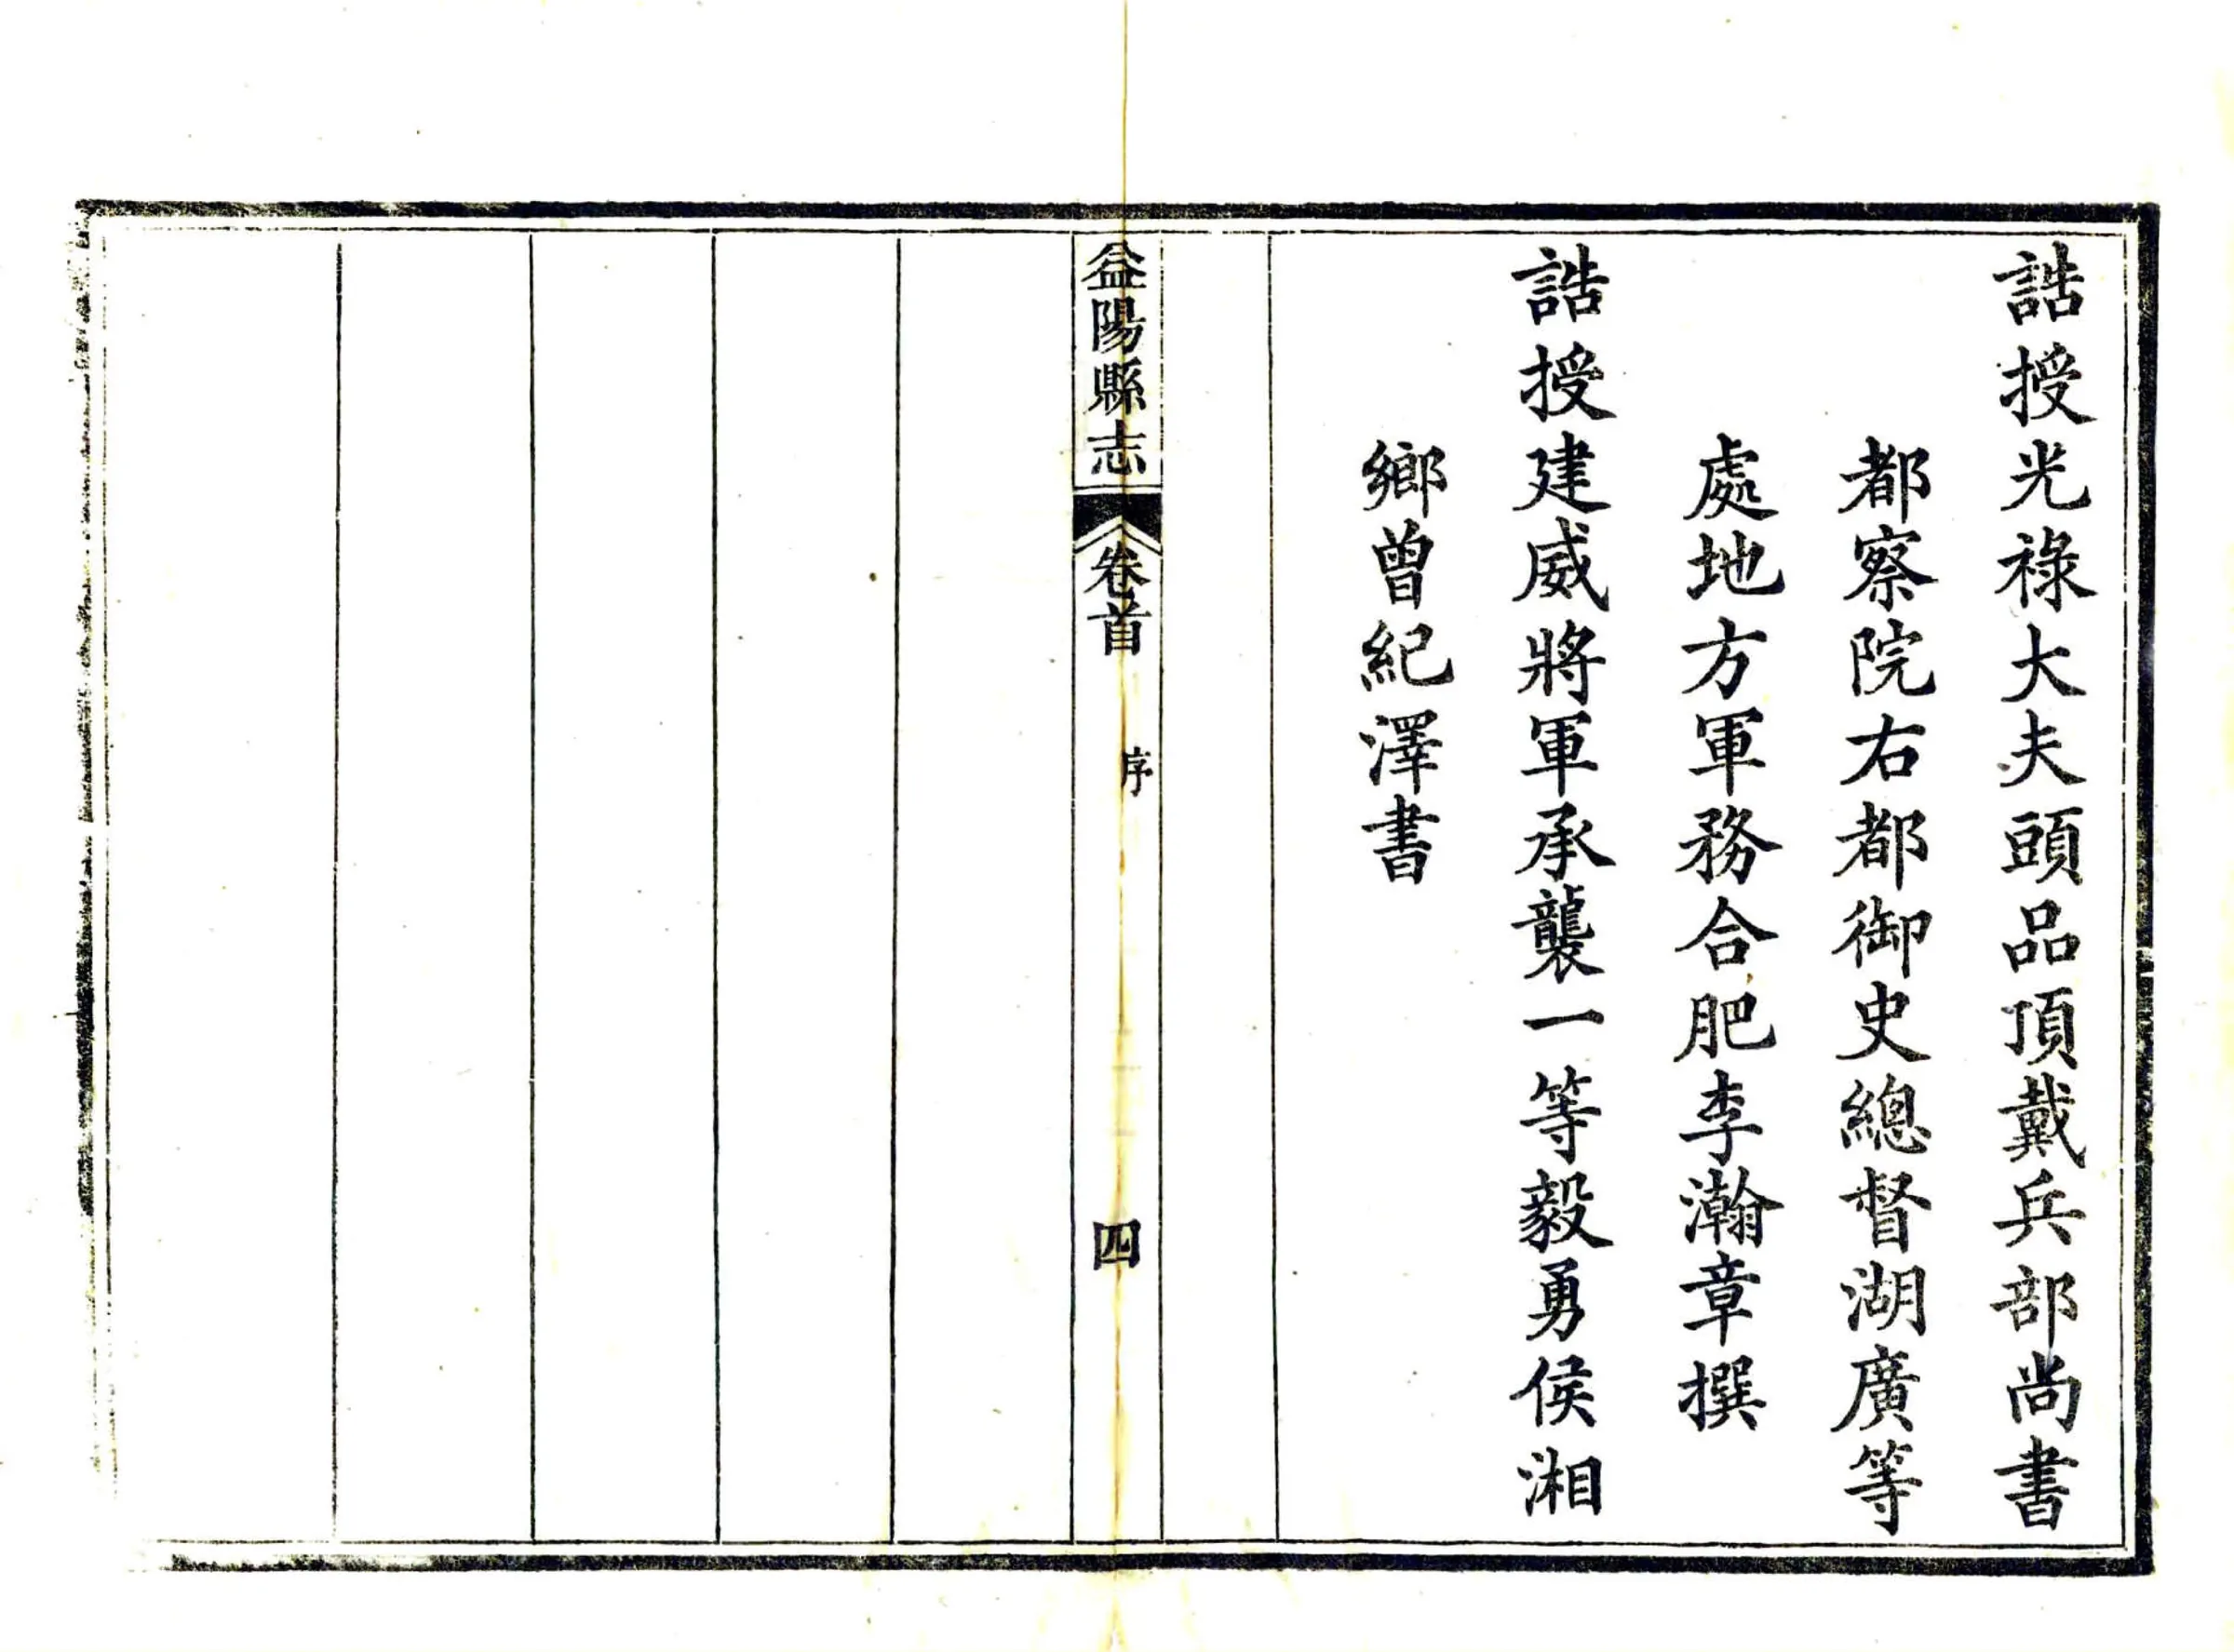 誥授光祿大夫頭品頂戴兵部尚書
都察院右都御史總督湖廣等
處地方軍務合肥李瀚章撰
誥授建威將軍承襲一等毅勇侯湘
鄉曾紀澤書
益陽縣志
卷首
序
四